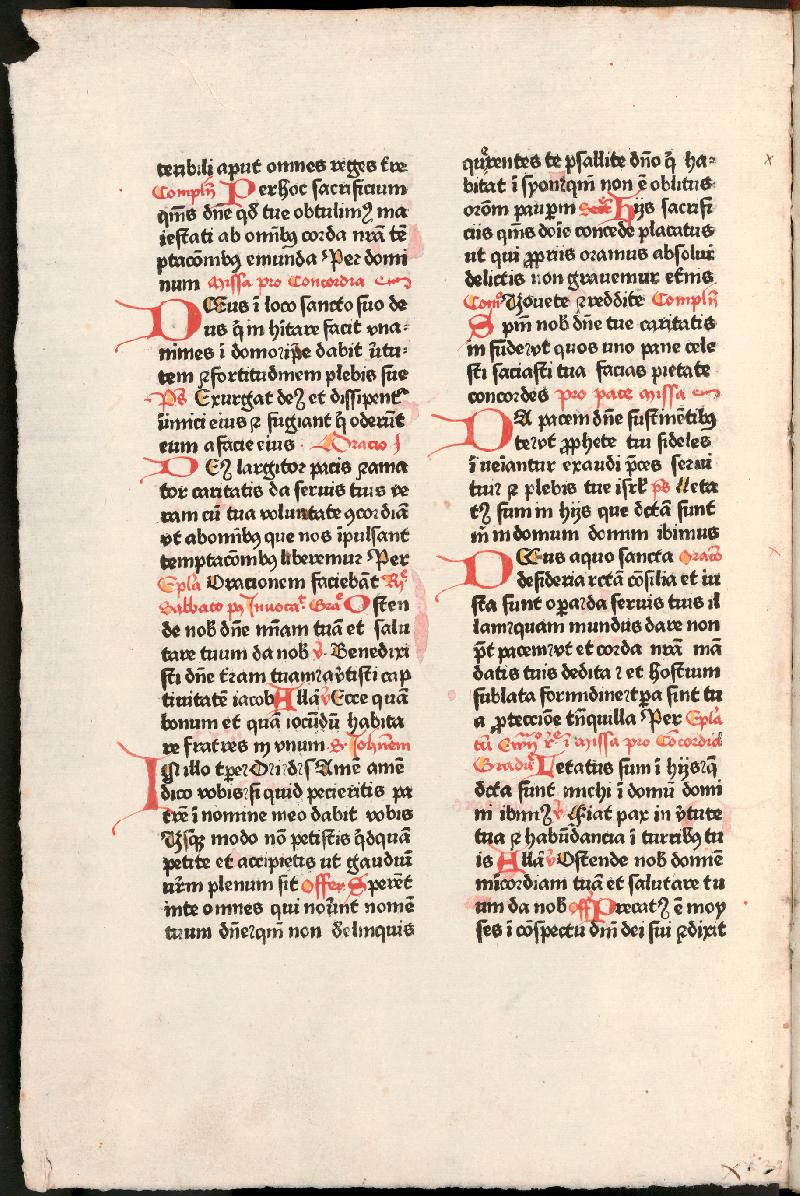 teribili aput omnes reges tre
Complñ Per hoc sacrificium
qms dne qd tue obtulimꝫ ma
iestati ab omibꝫ corda nrā tē
ptacōmbꝫ emunda Per domi
num Missa pro Concordia
DEus ī loco sancto suo de
us q̄ in hitare facit vna-
nimes ī domo ip̄e dabit v̄tu-
tem ⁊ fortitudinem plebis sue
Ps Exurgat deꝫ et dissipent
īimici eius ⁊ fugiant q̄ oderūt
eum a facie eius Oracio
DEꝫ largitor pacis ⁊ ama
tor caritatis da seruis tuis ve
ram cū tua voluntate ꝯcordiā
vt ab omibꝫ que nos īpulsant
temptacōmbꝫ liberemur Per
Epla Orationem faciebāt Rͫ
Sabbato pꝰ Inuoca. Gra Osten
de nob dne mīam tuā et salu
tare tuum da nob v. Benedixi
sti dne t̄ram tuam av̄tisti cap
tiuitatē iacob Allā v Ecce quā
bonum et quā iocūdū habita
re fratres in vnum S. Johēnem
In illo tꝑe Dixit ihs dis Amē amē
dico vobis si quid pecieritis pa
trē ī nomine meo dabit vobis
Vsqꝫ modo nō petistis q̄dquā
petite et accipietis ut gaudiū
ur̄m plenum sit Offer. Sperēt
in te omnes qui nor̄int nomē
tuum dne qm̄ non delinquis
qu̓rentes te psallite dn̄o q̄ ha-
bitat ī syon qm̄ non ē oblitus
orōm paupꝑm Secr̄ Hijs sacrifi
ciis qms dn̄e concede placatus
ut qui ꝓpriis oramus absolui
delictis non grauemur exͭnis
Comͦ Vouete ⁊ reddite Complñ
Spm̄ nob dne tue caritatis
in funde vt quos uno pane cele
sti saciasti tua facias pietate
concordes pro pace Missa
DA pacem dne sustinētibꝫ
te vt ꝓphete tui fideles
īueiantur exaudi p̄ces serui
tui ⁊ plebis tue isrl̄ ps Leta
tꝫ sum in hijs que dcā sunt
m̄ in domum domini ibimus
DEus a quo sancta Oracō
desideria rctā cōsilia et iu
sta sunt opa da seruis tuis il
lam quam mundus dare non
pt̄ pacem vt et corda nrā mā
datis tuis dedita ⁊ et hostium
sublata formidine tꝑa sint tu
a ꝓteccōe tn̄quilla Per Epla
cū Ewn̄ ꝛc̄ ī Missa pro Cōcordia
Graduͣ Letatus sum ī hijs q̄
dcā sunt michi ī domū domi
ni ibimꝫ v Fiat pax in v̄tute
tua ⁊ habūdancia ī turribꝫ tu
is Allā v Ostende nob domie
mīcordiam tuā et salutare tu
um da nob Off Precatꝫ ē moy
ses ī cōspectu dn̄i dei sui ⁊ dixit